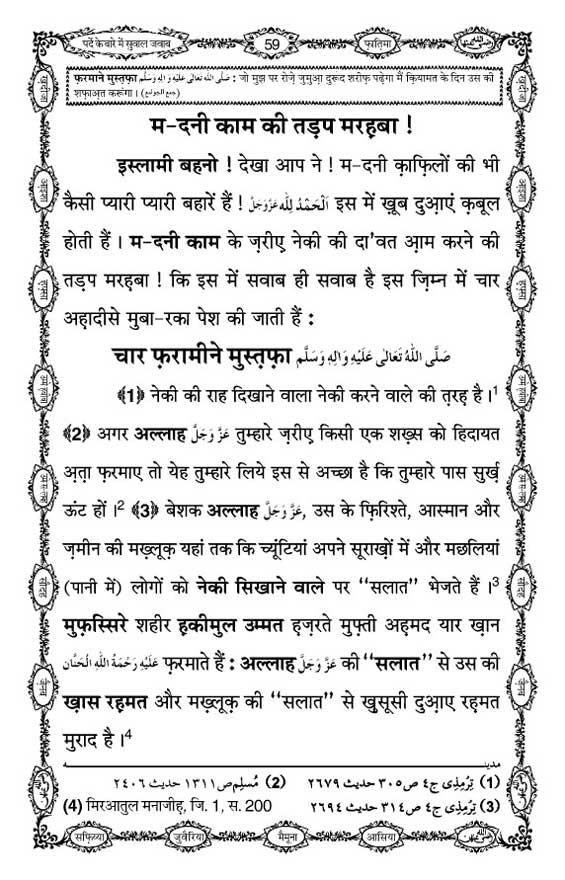 पर्दे के बारे में सुवाल जवाब
59
फ़ातिमा
फ़रमाने मुस्तफ़ा صَلَّى اللهُ تَعَالٰى عَلَيْهِ وَاٰلِهٖ وَسَلَّم : जो मुझ पर रोज़े जुमुआ़ दुरूद शरीफ़ पढ़ेगा मैं क़ियामत के दिन उस की
शफ़ाअ़त करूंगा। (جمع الجوامع)
म-दनी काम की तड़प मरह़बा !
इस्लामी बहनो ! देखा आप ने ! म-दनी क़ाफ़िलों की भी
कैसी प्यारी प्यारी बहारें हैं ! اَلْحَمْدُ لِلّٰه عَزَّوَجَلَّ इस में ख़ूब दुआ़एं क़बूल
होती हैं । म-दनी काम के ज़रीए़ नेकी की दा'वत आ़म करने की
तड़प मरह़बा ! कि इस में सवाब ही सवाब है इस ज़िम्न में चार
अह़ादीसे मुबा-रका पेश की जाती हैं :
चार फ़रामीने मुस्त़फ़ा صَلَّى اللهُ تَعَالٰى عَلَيْهِ وَاٰلِهٖ وَسَلَّم
﴾1﴿ नेकी की राह दिखाने वाला नेकी करने वाले की त़रह़ है ।1
﴾2﴿ अगर अल्लाह عَزَّ وَجَلَّ तुम्हारे ज़रीए़ किसी एक शख़्स को हिदायत
अ़त़ा फ़रमाए तो येह तुम्हारे लिये इस से अच्छा है कि तुम्हारे पास सुर्ख़
ऊंट हों ।2 ﴾3﴿ बेशक अल्लाह عَزَّ وَجَلَّ, उस के फ़िरिश्ते, आस्मान और
ज़मीन की मख़्लूक़ यहां तक कि च्यूंटियां अपने सूराख़ों में और मछलियां
(पानी में) लोगों को नेकी सिखाने वाले पर "सलात" भेजते हैं ।3
मुफ़स्सिरे शहीर ह़कीमुल उम्मत ह़ज़रते मुफ़्ती अह़मद यार ख़ान
عَلَيْهِ رَحْمَةُ اللهِ الْحَنَّان फ़रमाते हैं : अल्लाह عَزَّ وَجَلَّ की "सलात" से उस की
ख़ास रह़मत और मख़्लूक़ की "सलात" से ख़ुसूसी दुआ़ए रह़मत
मुराद है ।4
مدینہ
(1) تِرْمِذِی ج٤ ص٣٠٥ حدیث ٢٦٧٩ (2) مُسلِم ص١٣١١ حدیث ٢٤٠٦
(3) تِرْمِذِی ج٤ ص٣١٤ حدیث ٢٦٩٤
(4) मिरआतुल मनाजीह़, जि. 1, स. 200
सफ़िय्या
जुवैरिया
मैमूना
आसिया